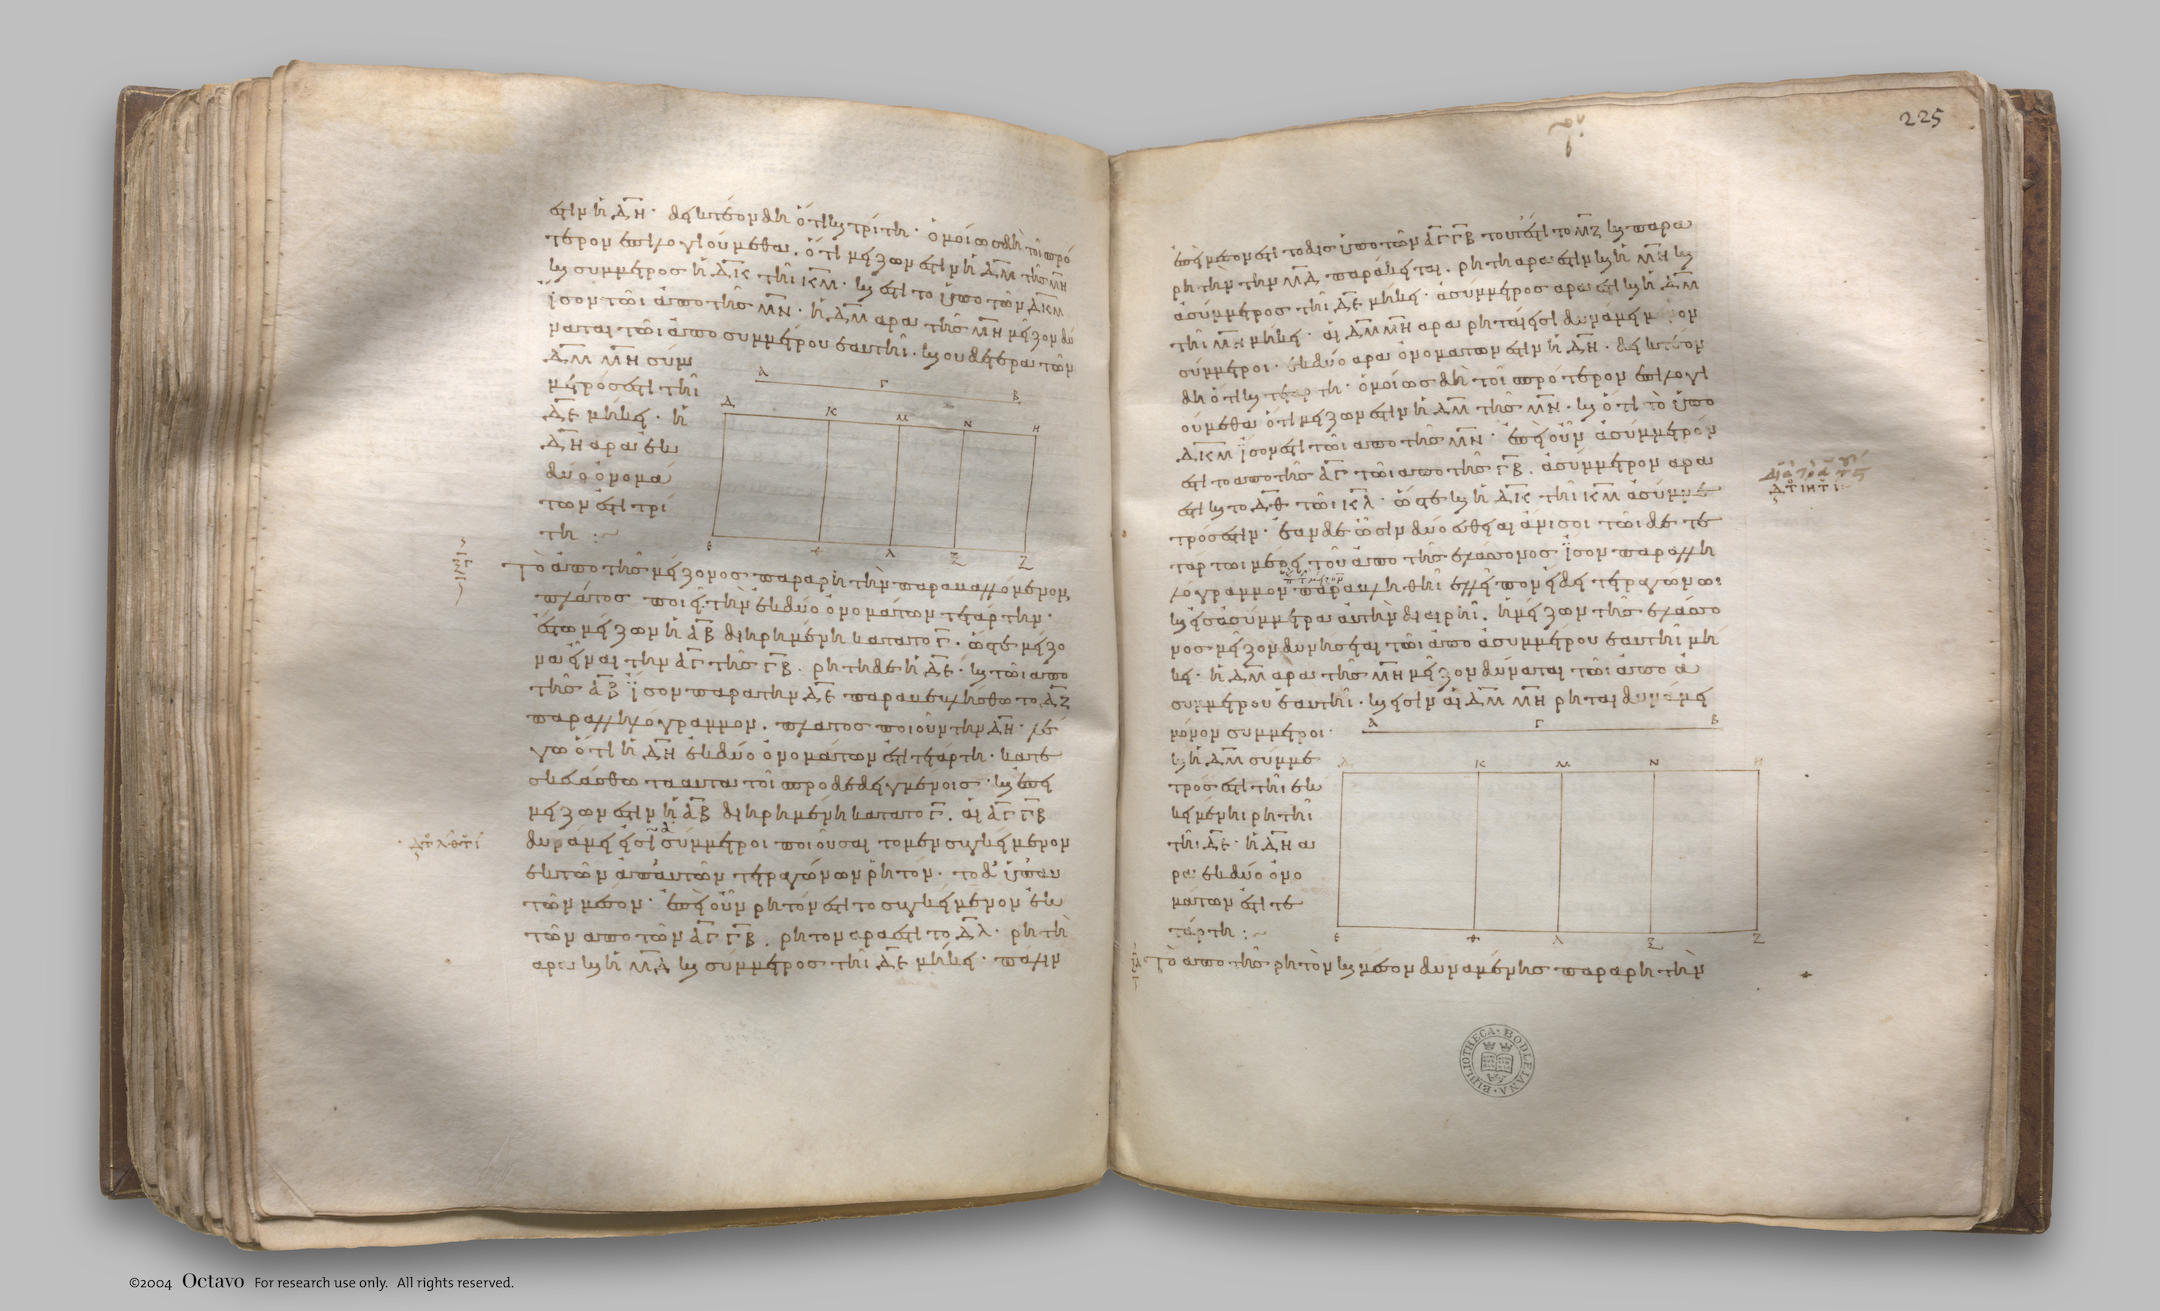 ἐστιν ἡ ΔΗ· δεικτέον δὴ ὅτι καὶ τρίτη· ὁμοίως δὴ τοῖ προ
τέρον ἐπιλογιούμεθα. ὅτι μείζων ἐστιν ἡ ΔΜ τῆς ΜΗ
καὶ συμμετρος ἡ ΔΚ τῆι ΚΜ· καί ἐστι το ὑπο τῶν ΔΚΜ
ἴσον τῶι ἀπο τῆς ΜΝ· ἡ ΔΜ αρα τῆς ΜΗ μεῖζον δύ
ναται τῶι ἀπο συμμέτρου ἑαυτῆι· καὶ ουδετέρα τῶν
ΔΜ ΜΗ σύμ
μετρος ἐστι τῆι
ΔΕ μήκει· ἡ
ΔΗ αρα ἐκ
δύο ὀνομά
των ἐστι τρί
τη :~
Α Γ Β
Δ Κ Μ Ν Η
Ε Θ Λ Ξ Ζ
ξγ
Τὸ ἀπο τῆς μείζονος παρα ρητὴν παραβαλλόμενον,
πλάτος ποιεῖ τὴν ἐκ δύο ὀνομάτων τετάρτην·
ἔστω μείζων ἡ ΑΒ διηρημένη κατα το Γ. ὥστε μείζο
να εἶναι την ΑΓ τῆς ΓΒ. ρητη δε ἡ ΔΕ· καὶ τῶι απο
τῆς ΑΒ ἴσον παρα την ΔΕ παραβεβλησθω το ΔΖ
παραλληλόγραμμον. πλατος ποιοῦν την ΔΗ· λέ
γω ὅτι ἡ ΔΗ ἐκ δύο ὀνομάτων ἐστι τετάρτη· κατε
σκευάσθω τα αυτα τοῖ προδεδειγμένοις· καὶ ἐπεὶ
μείζων ἐστιν ἡ ΑΒ διηρημένη κατα το Γ. αἱ ΑΓ ΓΒ
δυνάμει εἰσὶν ἀσύμμετροι ποιοῦσαι το μεν συγκείμενον
εκ τῶν ἀπ αυτῶν τετραγώνων ρητον. το δ ὑπ αυ
τῶν μέσον· ἐπεὶ οὖν ρητόν ἐστι το συγκείμενον ἐκ
τῶν απο τῶν ΑΓ ΓΒ. ρητον αρα ἐστι το ΔΛ. ρητὴ
αρα καὶ ἡ ΜΔ καὶ σύμμετρος τῆι ΔΕ μήκει· πάλιν
225
ἐπεὶ μέσον ἐστι το δις ὑπο τῶν ΑΓ ΓΒ τουτέστι το ΜΖ καὶ παρα
ρητὴν την ΜΛ παράκειται. ρητη αρα ἐστιν καὶ ἡ ΜΗ καὶ
ἀσύμμετρος τῆι ΔΕ μήκει· ἀσύμμετρος αρα ἐστι καὶ ἡ ΔΜ
τῆι ΜΗ μήκει· αἱ ΔΜ ΜΗ αρα ρηταί εἰσι δυνάμει μόνον
σύμμετροι· ἐκ δύο αρα ὀνοματων ἐστιν ἡ ΔΗ· δεικτέον
δὴ ὅτι καὶ τετάρτη· ὁμοίως δὴ τοῖ προτερον ἐπιλογι
ούμεθα ὅτι μείζων ἐστιν ἡ ΔΜ τῆς ΜΗ· καὶ ὅτι τὸ ὑπο
ΔΚΜ ἴσον ἐστι τῶι απο τῆς ΜΝ· ἐπεὶ οὖν ἀσύμμετρόν
ἐστι το απο τῆς ΑΓ τῶι απο τῆς ΓΒ. ἀσύμμετρον αρα
ἐστι καὶ το ΔΘ τῶι ΚΛ· ὥστε καὶ ἡ ΔΚ τῆι ΚΜ ἀσύμμε
τρός ἐστιν· ἐαν δε ὦσιν δύο εὐθεῖαι ἄνισοι τῶι δε τε
τάρτωι μέρει τοῦ ἀπο τῆς ἐλάσσονος ἴσον παραλλη
λόγραμμον παραβληθῆι ἐλλεῖπον εἴδει τετραγώνωι
καὶ εἰς ἀσύμμετρα αὐτὴν διαιρῆι. ἡ μείζων τῆς ἐλάσσο
νος μεῖζον δυνήσεται τῶι ἀπο ἀσυμμέτρου ἑαυτῆι μή
κει· ἡ ΔΜ αρα τῆς ΜΗ μεῖζον δύναται τῶι ἀπο ἀ
συμμέτρου ἑαυτῆι· καί εἰσιν αἱ ΔΜ ΜΗ ρηταὶ δυνάμει
μόνον σύμμετροι·
καὶ ἡ ΔΜ σύμμε
τρος ἐστι τῆι ἐκ
κειμένηι ρητῆι
τῆι ΔΕ· ἡ ΔΗ α
ρα ἐκ δύο ὀνο
μάτων ἐστι τε
τάρτη :~
Α Γ Β
Δ Κ Μ Ν Η
Ε Θ Λ Ξ Ζ
ξδ
Τὸ απο τῆς ρητὸν καὶ μέσον δυναμένης παρα ρητὴν
BIBLIOTHECA BODLEIANA
©2004 Octavo For research use only. All rights reserved.